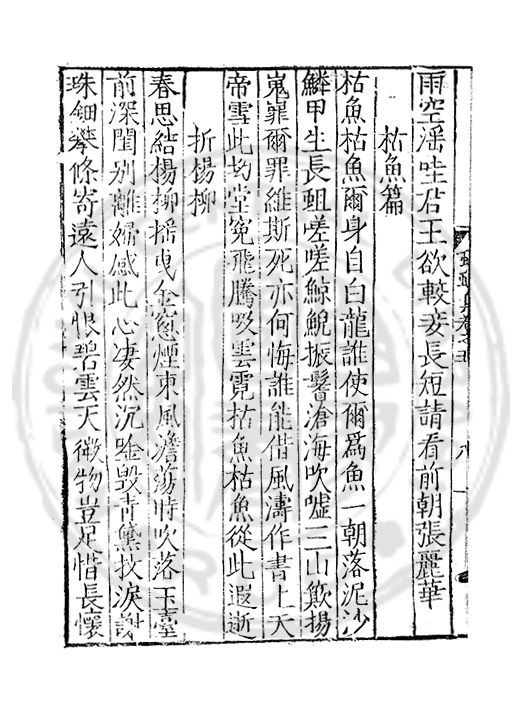 雨空滛哇君王欲較妾長短請看前朝張麗華
枯魚篇
枯魚枯魚爾身自白龍誰使爾爲魚一朝落泥沙
鱗甲生長蛆嗟嗟鯨鯢振鬐滄海吹噓三山歕揚
嵬罪爾罪維斯死亦何悔誰能借風濤作書上天
帝雪此坳堂冤飛騰吸雲霓枯魚枯魚從此遐逝
折楊柳
春思結楊柳揺曳金窗煙東風澹蕩時吹落玉臺
前深閨别離婦感此心凄然沉唫毀青黛抆淚謝
珠鈿攀條寄遠人引恨碧雲天微物豈足惜長懷